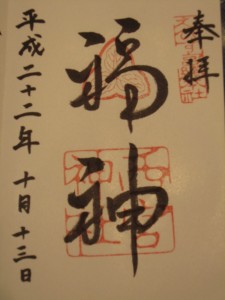 奉拝
福神
平成二十二年 十月十三日